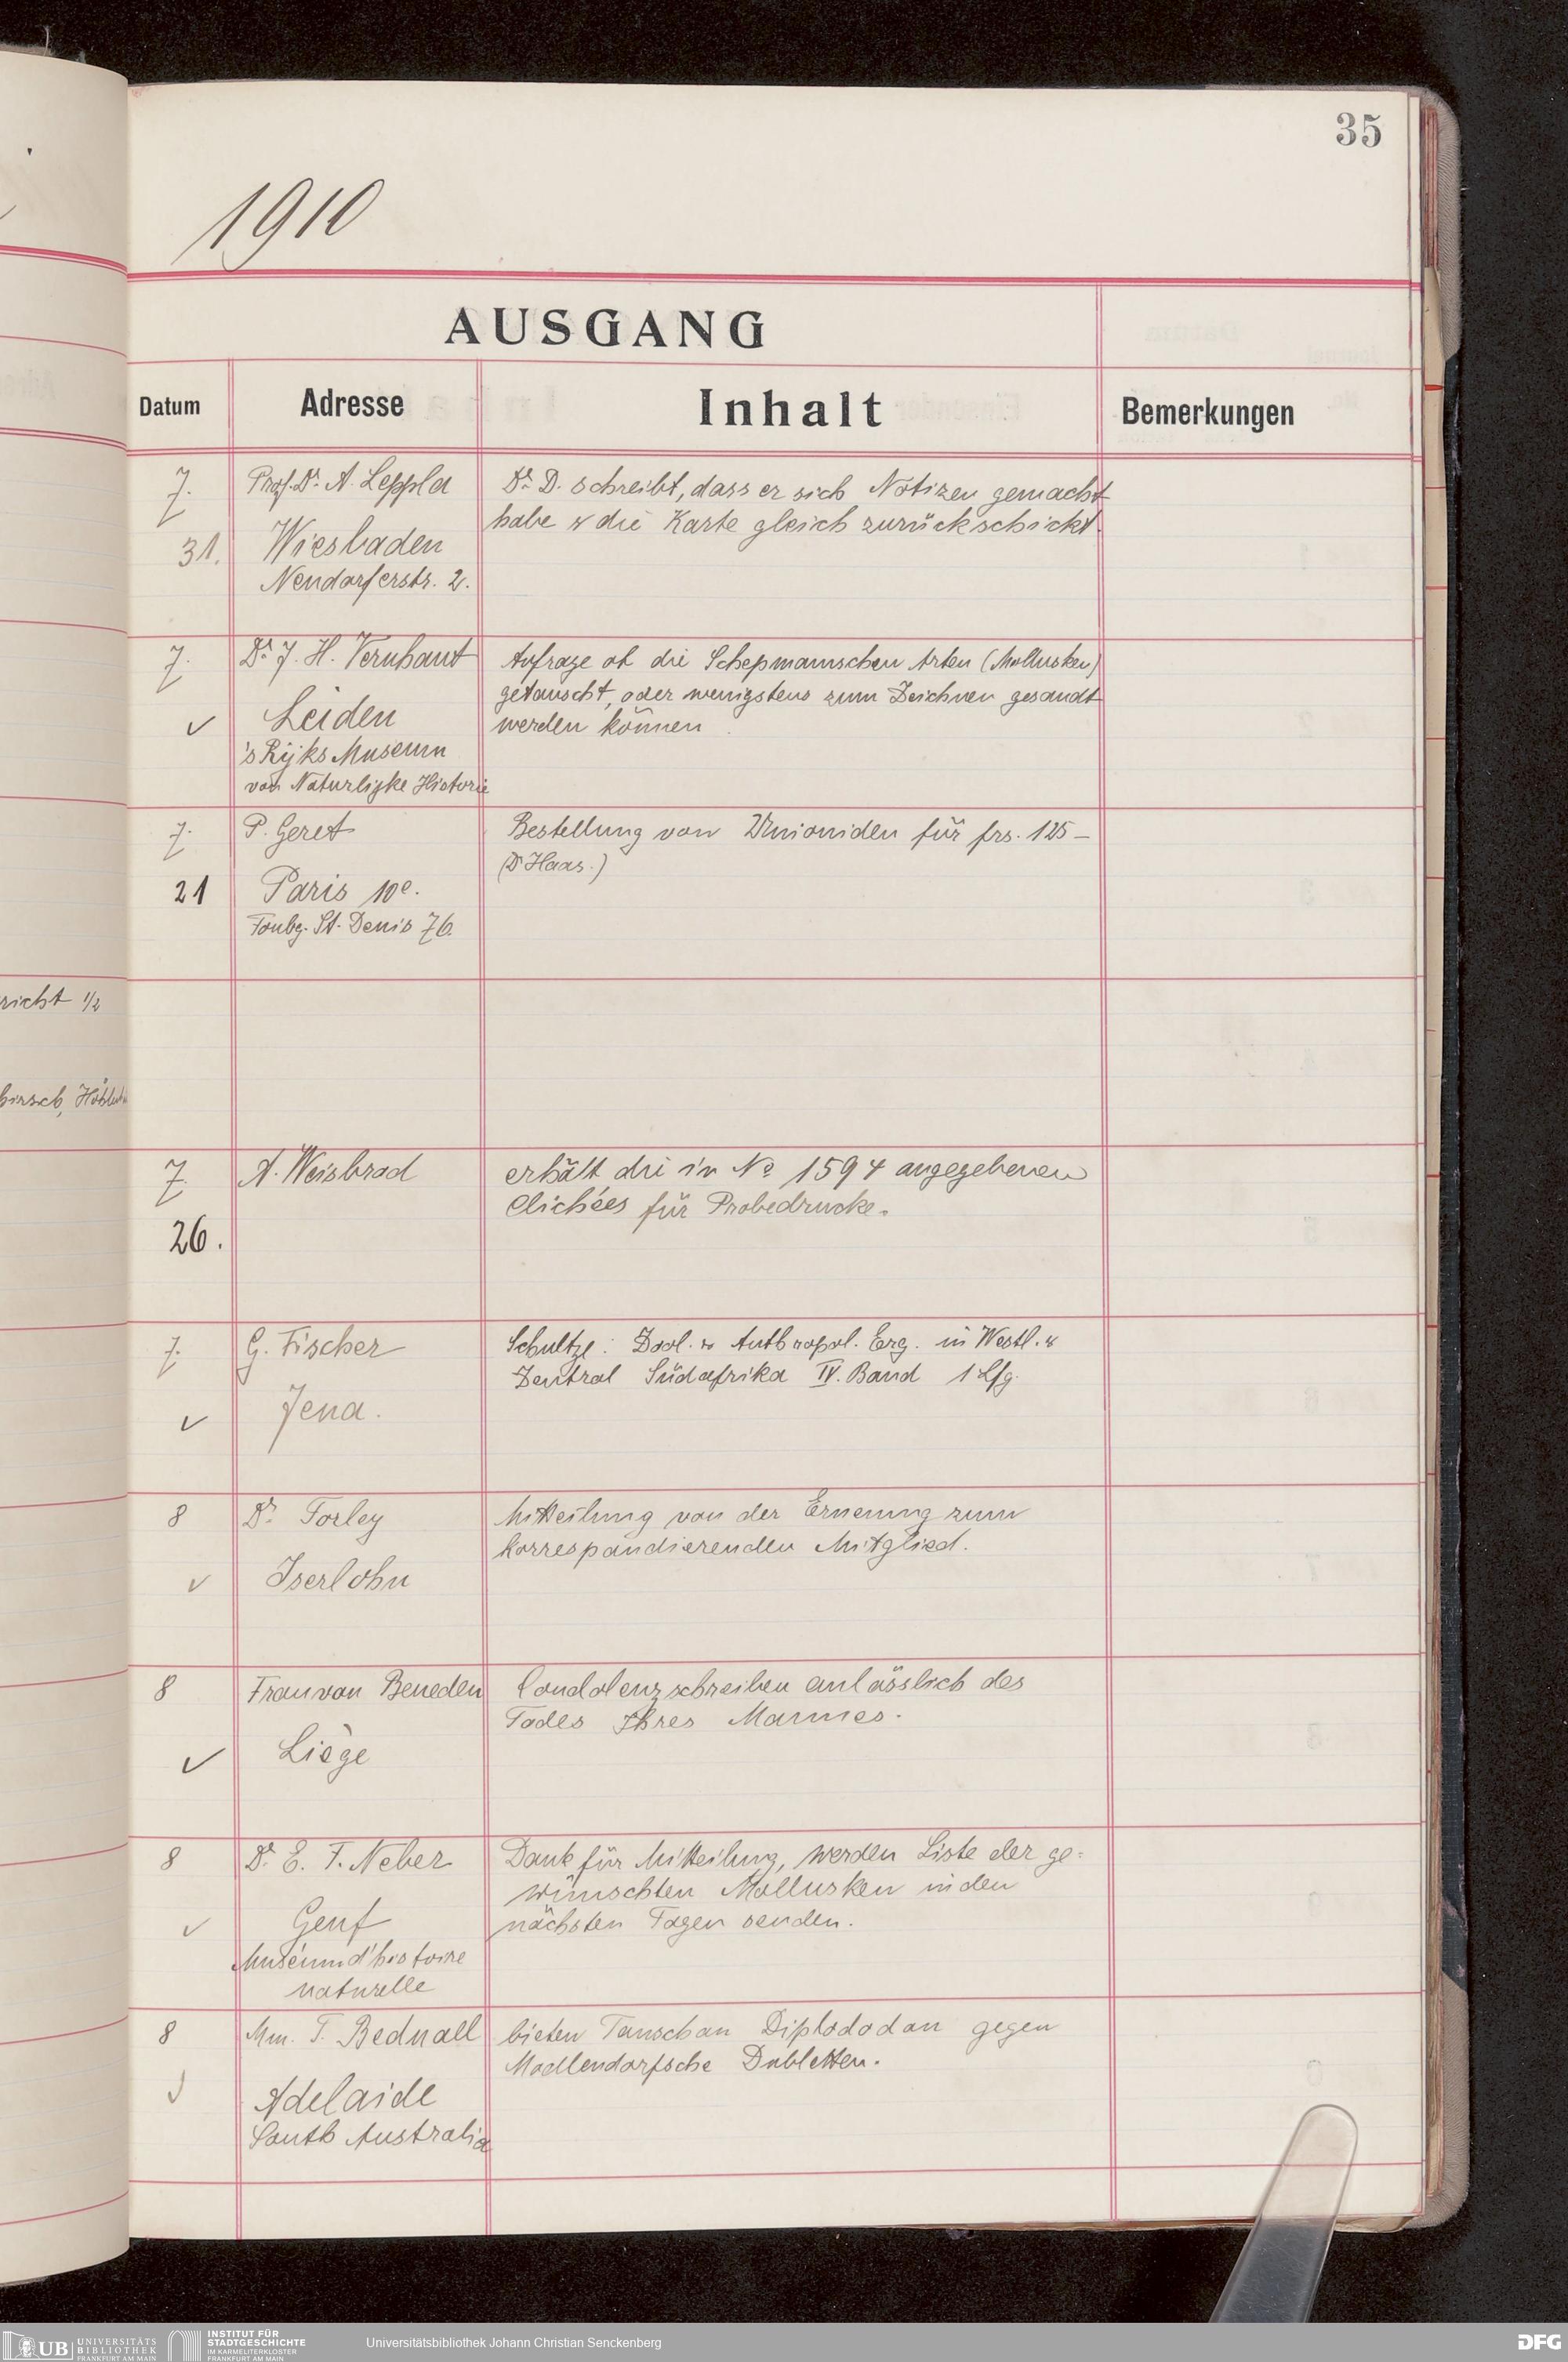 35
1910
AUSGANG
Datum Adresse Inhalt Bemerkungen
7. Prof. Dr. A. Leppla Dr. D. schreibt, dass er sich Notizen gemacht
habe & die Karte gleich zurückschickt.
31. Wiesbaden
Nendorferstr. 2.
7. Dr. J. H. Vernhout Anfrage ob die Schepmannschen Arten (Mollusken)
getauscht, oder wenigstens zum Zeichnen gesandt
✓ Leiden werden können
's Rijks Museum
van Naturlijke Historie
7. P. Geret Bestellung von Unioniden für frs. 125 –
(Dr Haas.)
21 Paris 10e.
Foubg. St. Denis 76.
richt 1/2
hirsch,
7. A. Weisbrod erhält die in No 1594 angegebenen
Clichées für Probedrucke.
26.
7. G. Fischer Schultze: Zool. & Anthropol. Erg. in Westl. &
Zentral Südafrika IV. Band 1 Lfg.
✓ Jena.
8 Dr. Torley Mitteilung von der Ernennung zum
korrespondierenden Mitglied.
✓ Iserlohn
8 Frau van Beneden Condolenzschreiben anlässlich des
Todes Ihres Mannes.
✓ Liège
8 Dr. E. F. Neber Dank für Mitteilung, werden Liste der ge-
wünschten Mollusken in den
✓ Genf nächsten Tagen senden.
Muséum d'histoire
naturelle
8 Mm. T. Bednall bieten Tausch an Diplododon gegen
Moellendorfsche Dubletten.
✓ Adelaide
South Australia
UB UNIVERSITÄTS
BIBLIOTHEK
FRANKFURT AM MAIN
INSTITUT FÜR
STADTGESCHICHTE
IM KARMELITERKLOSTER
FRANKFURT AM MAIN
Universitätsbibliothek Johann Christian Senckenberg
DFG